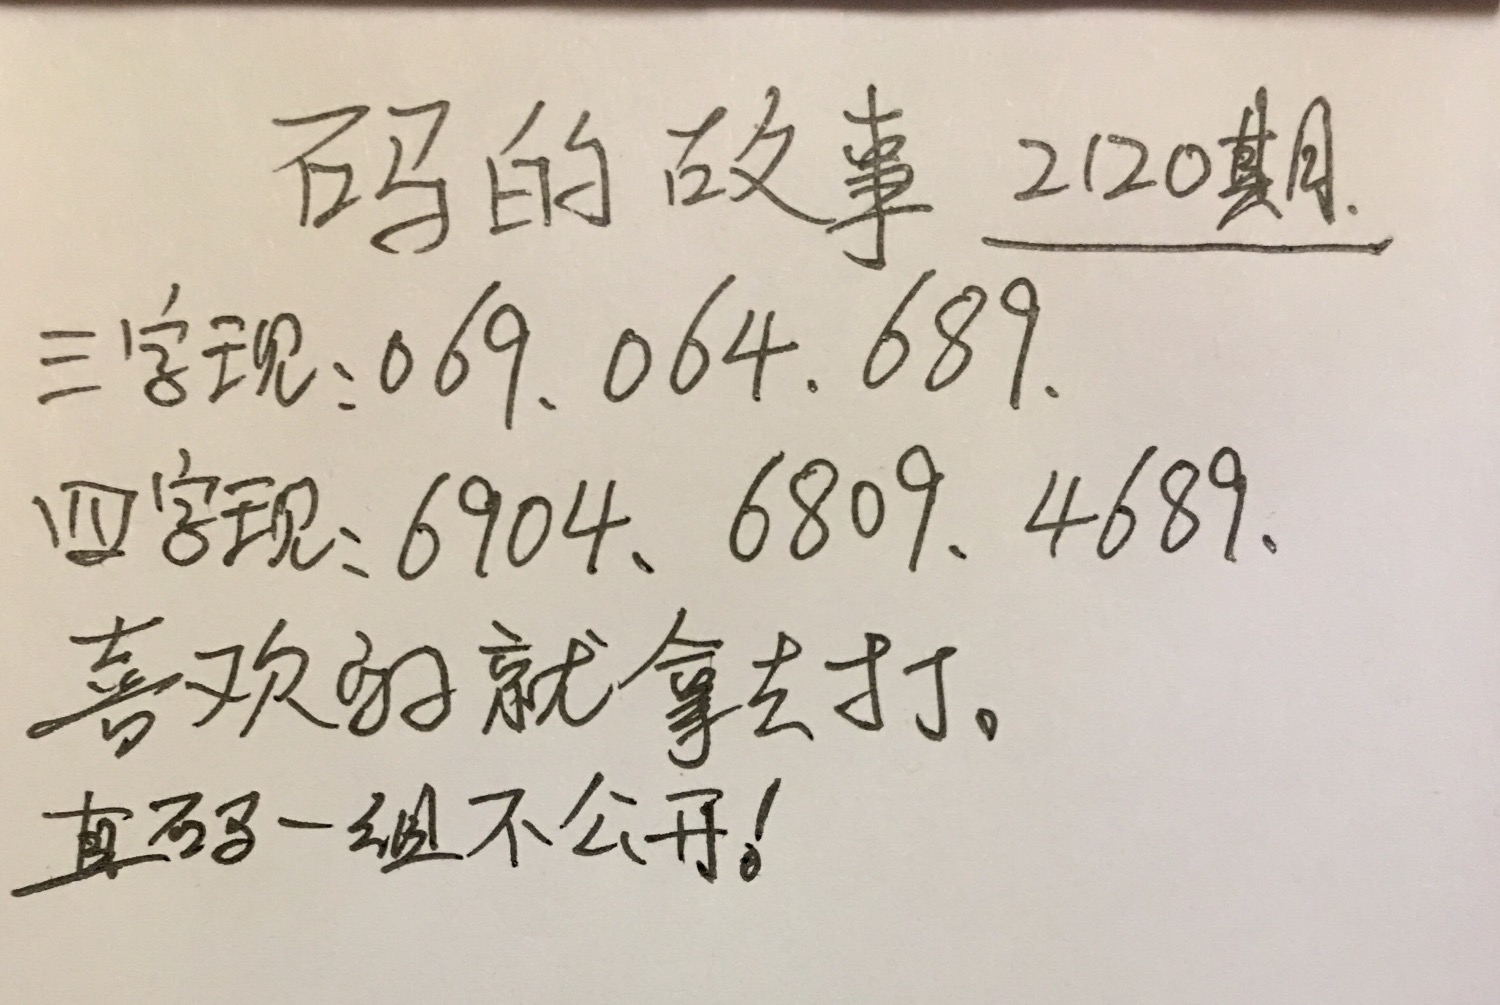 码的故事 2120期.
三字现:069、064.689.
四字现:6904、6809、4689、
喜欢的就拿去打。
直码一组不公开!